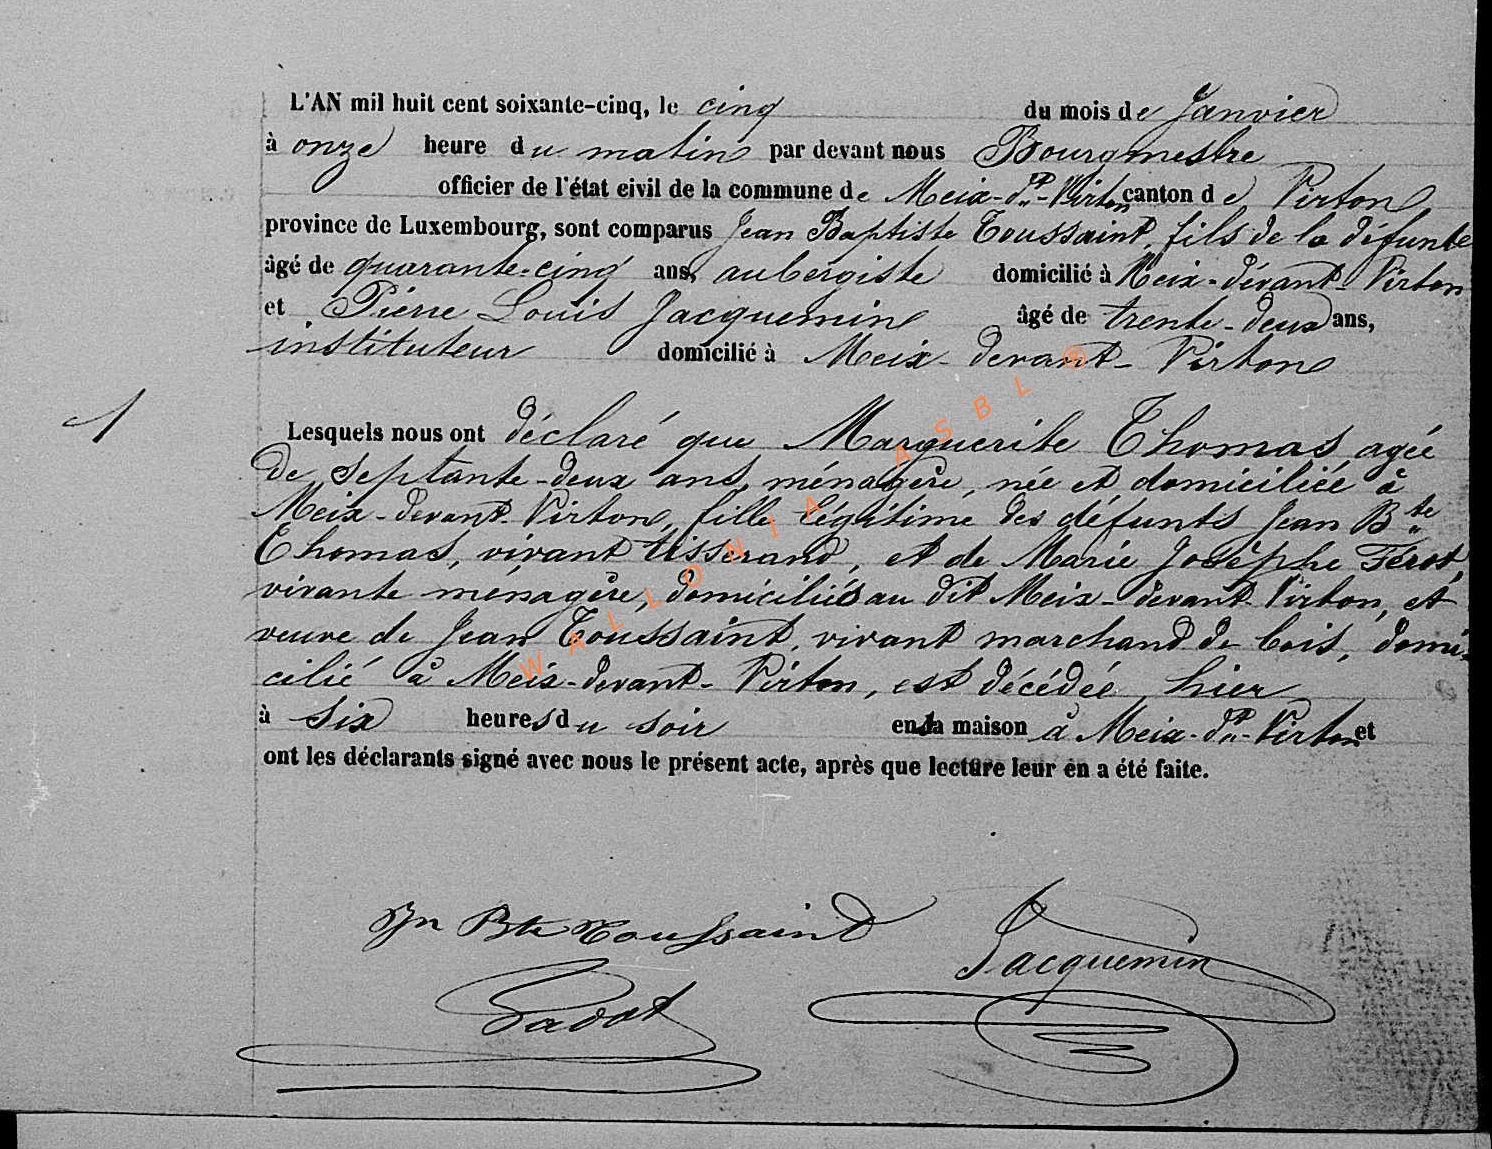 L'AN mil huit cent soixante-cinq, le cinq du mois de Janvier
à onze heure du matin par devant nous Bourgmestre
officier de l'état civil de la commune de Meix-dt-Virton canton de Virton
province de Luxembourg, sont comparus Jean Baptiste Toussaint, fils de la défunte
âgé de quarante-cinq ans, aubergiste domicilié à Meix-devant-Virton
et Piérre Louis Jacquemin âgé de trente-deux ans,
instituteur domicilié à Meix-devant-Virton
1
Lesquels nous ont déclaré que Marguerite Thomas agée
de septante-deux ans, ménagère, née et domiciliée à
Meix-devant-Virton, fille légitime des défunts Jean Bte
Thomas, vivant tisserand, et de Marie Josèphe Férot,
vivante ménagère, domiciliés au dit Meix-devant-Virton, et
veuve de Jean Toussaint, vivant marchand de bois, domi-
cilié à Meix-devant-Virton, est décédée hier
à six heures du soir en la maison à Meix-dt-Virton et
ont les déclarants signé avec nous le présent acte, après que lecture leur en a été faite.
Jn Bte Toussaint
Jacquemin
WALLONIA ASBL ®